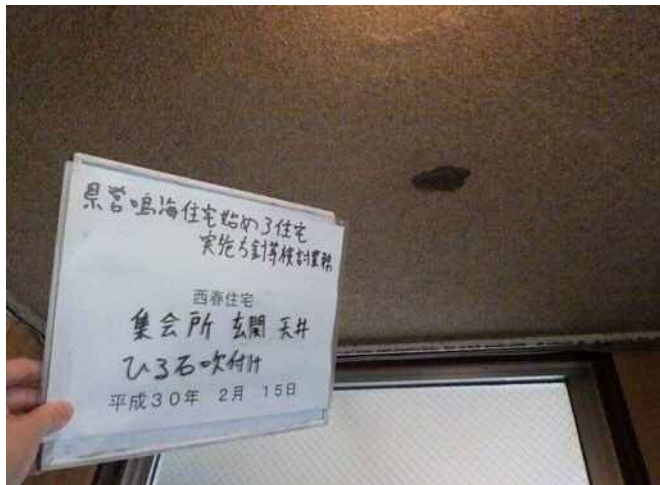 県営鳴海住宅始め3住宅
実施方針等検討業務
西春住宅
集会所 玄関 天井
ひる石吹付け
平成30年 2月 15日